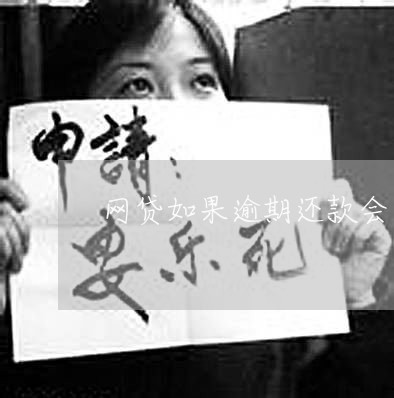 申請:
网贷如果逾期还款会
安乐死